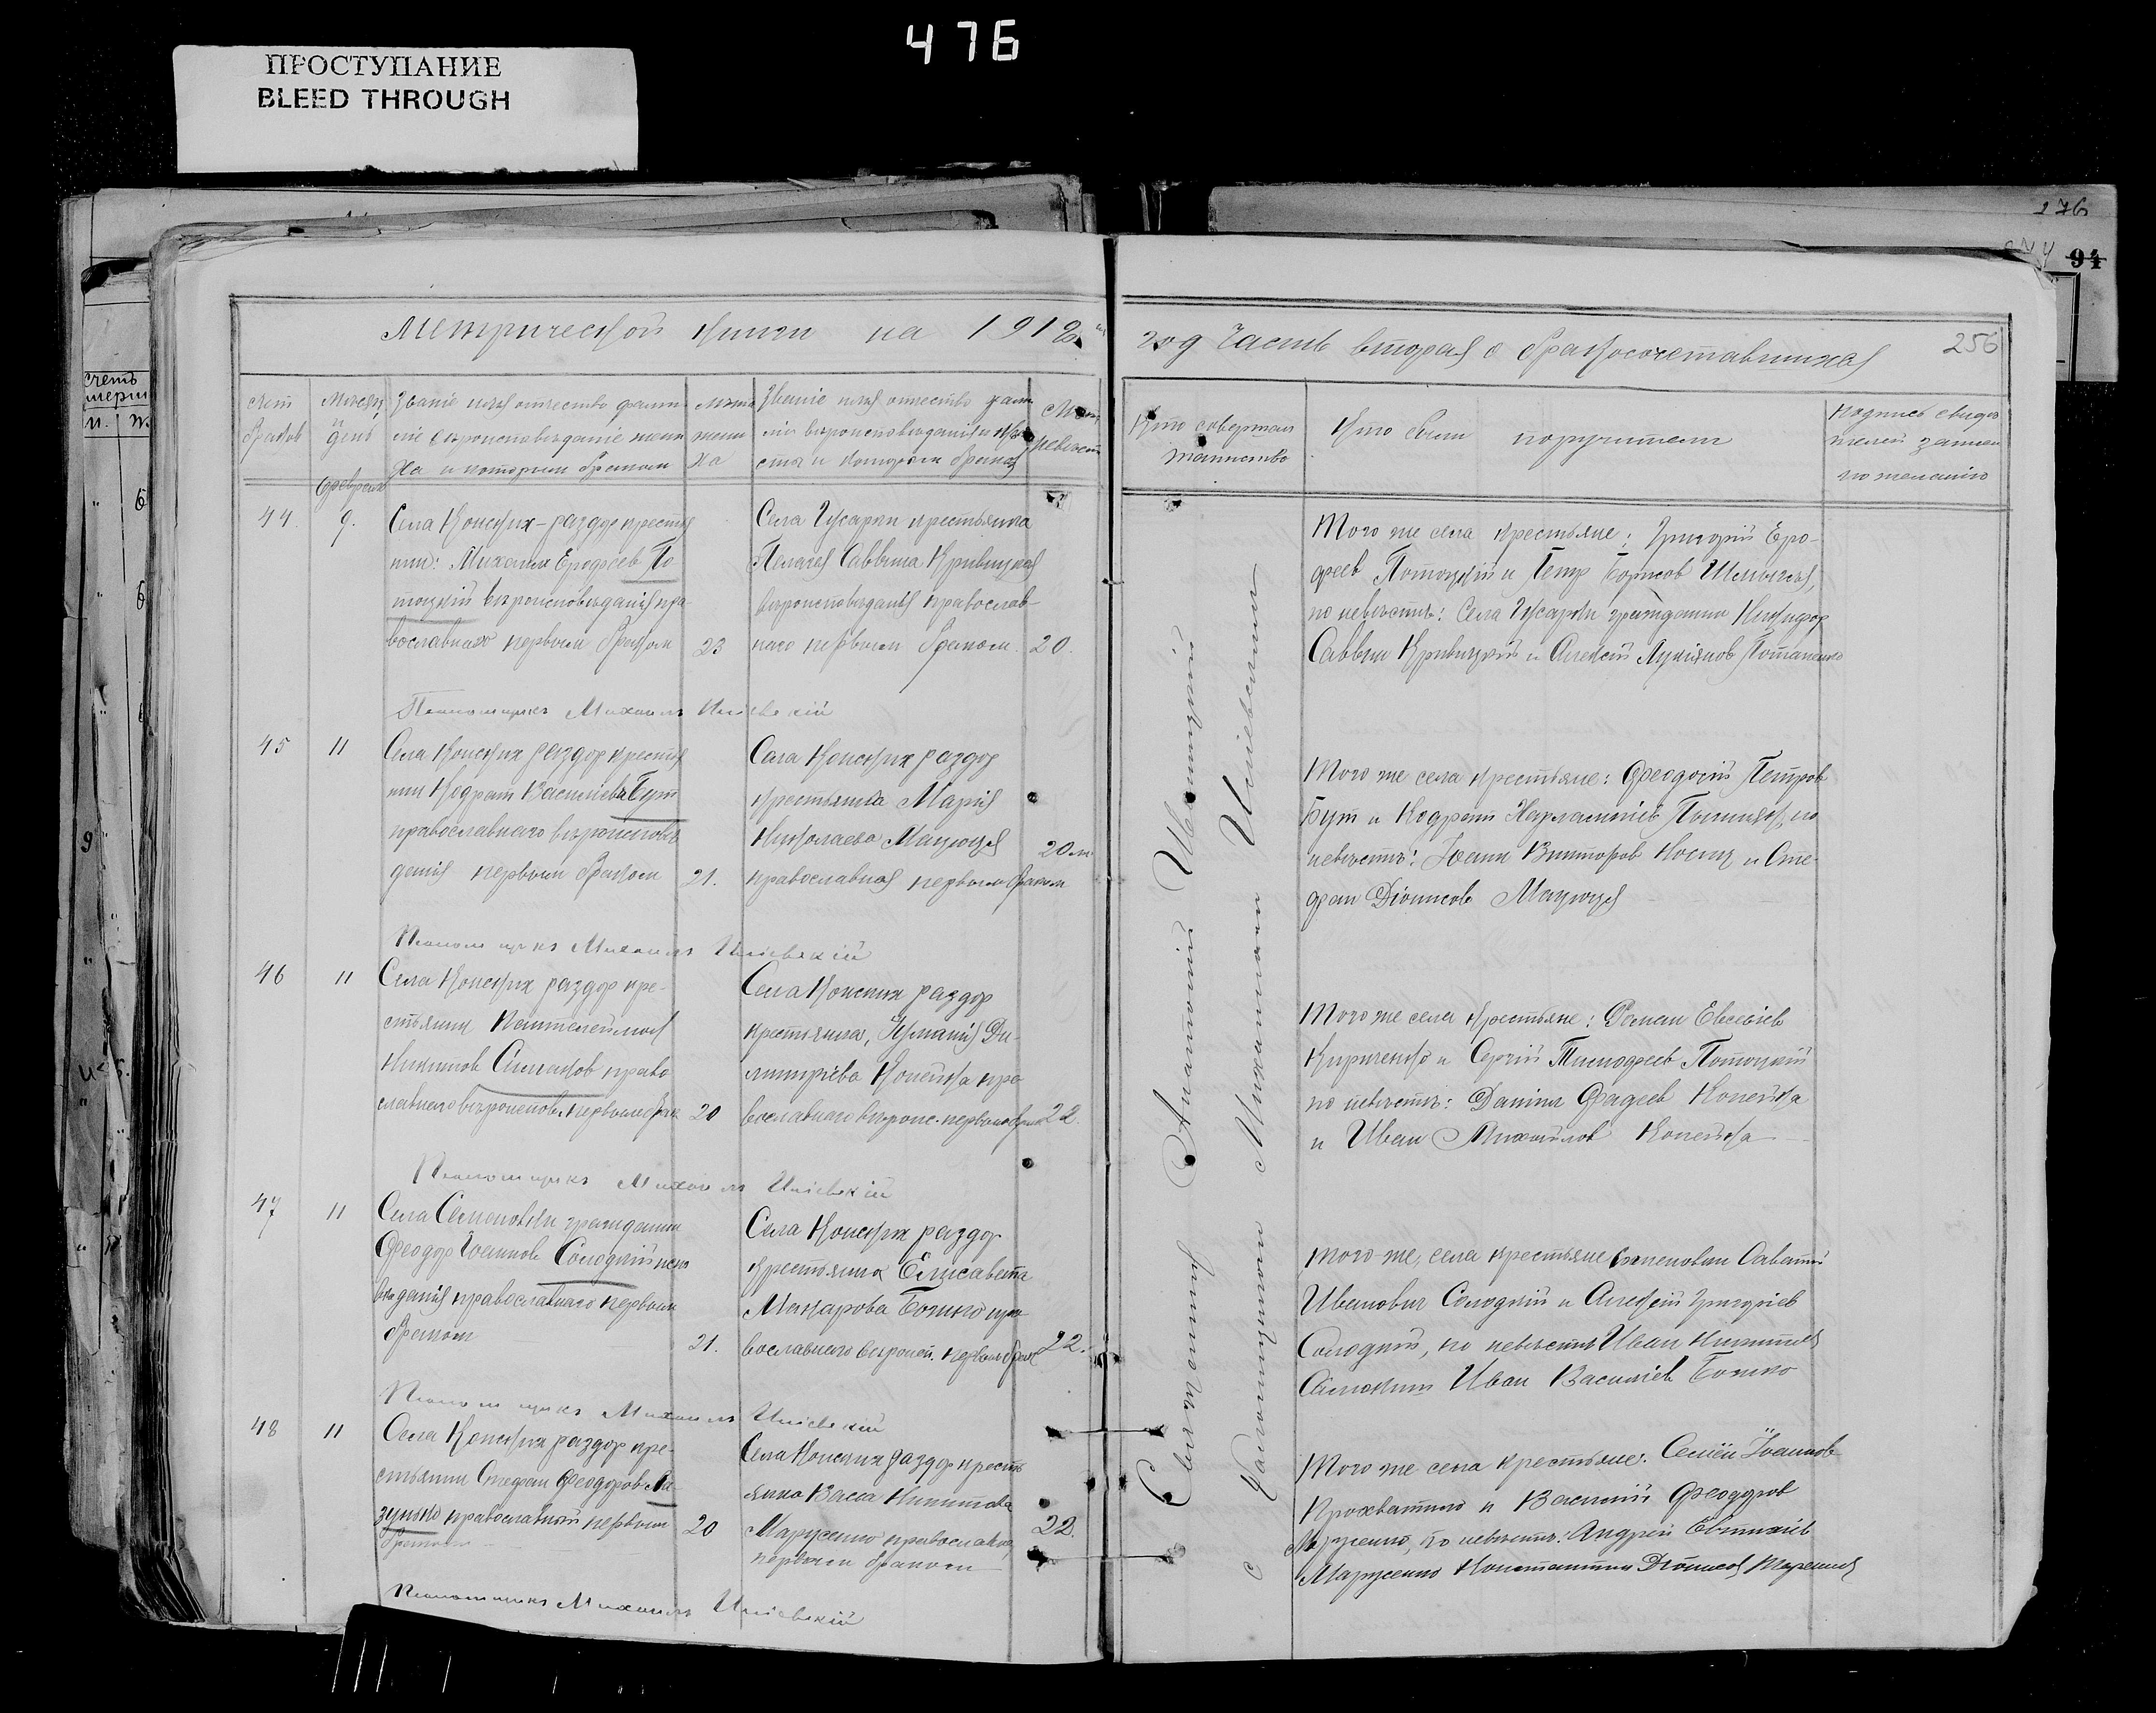 476
ПРОСТУПАНИЕ
BLEED THROUGH
276
94
Метрической книги на 1918
год Часть вторая о бракосочетавшихся
256
счет браков
Месяц и день
Званіе имя отчество фами
ліе вероисповеданіе жени
ха и которым браком
лета
жени
ха
Званіе имя отчество фами
невест
Кто совершал
таинство
Кто были поручители
подпись свиде
телей записи
по желанію
февраля
44. 9.
Села Конских-раздор крестья
нин: Михаил Ерофеев По
тоцкий вероисповеданія пра
вославнаго первым браком
23
Села Гусарки крестьянка
Пелагея Саввина Кривицкая
вероисповеданія православ-
наго первым браком.
20.
Того же села крестьяне: Григорий Еро-
феев Потоцкий и Петр Борисов
по невесте: Села Гусарки гражданин Никифор
Саввин Кривицкий и Алексей Лукіянов Потапенко
Псаломщикъ Михаилъ
45 11
Села Конских раздор крестья
нин Кодрат Васильев Бут
православнаго вероиспове
данія первым браком
21.
Села Конских раздор
крестьянка Марія
Николаева Мацюця
православная первым браком
20 л.
Того же села крестьяне: Феодосий Петров
Бут и Кодрат Харлампиев по
невесте: Іоанн Викторов и Сте-
фан Діонисов Мацюця
Псаломщикъ Михаилъ
46 11
Села Конских раздор кре-
стьянин Пантелеймон
Никитов Симаков право
славнаго вероиспов. первым брак
20
Села Конских раздор
крестьянка, Ди-
митріева Копейка пра
вославнаго вероис. первым браком
22.
Того же села крестьяне: Роман Евсевіев
Кириченко и Сергий Тимофеев Потоцкий
по невесте: Даниил Фадеев Копейка
и Иван Михайлов Копейка
Псаломщикъ Михаилъ
47 11
Села Семеновки гражданин
Феодор Іоаннов Солодкий испо
веданія православнаго первым
браком
21.
Села Конских раздор
крестьянка Елизавета
Макарова Божко пра
вославнаго вероисп. первым брак
22.
того-же, села крестьяне Саватий
Иванович Солодкий и Алексей Григоріев
Солодкий, по невесте Иван Никитов
Иван Василіев Божко
Псаломщикъ Михаилъ
48 11
Села Конских раздор кре-
стьянин Стефан Феодоров Ла
зунько православный первым
браком
20
Села Конских раздор кресть
янка Васса Никитова
Марущенко православная
первым браком
22.
Того же села крестьяне: Семён Іоаннов
и Василий Феодоров
по невесте: Андрей Евтихіев
Марущенко Константин Діонисов
Псаломщикъ Михаилъ
Священник Анатолий
с Псаломщиком Михаилом